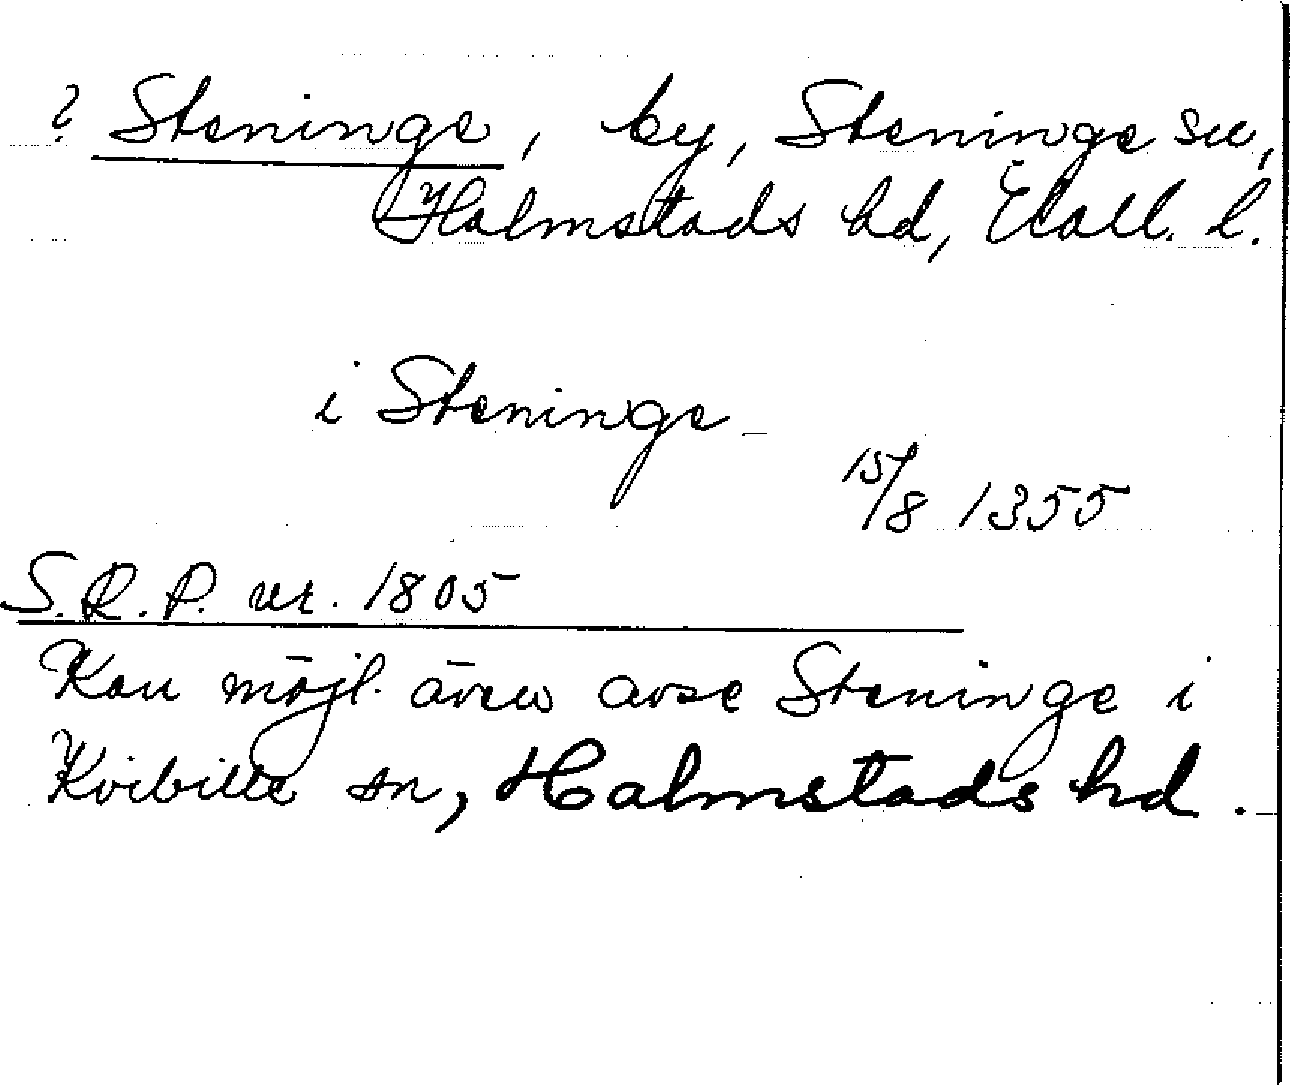 ? Steninge, by, Steninge sn,
Halmstads hd, Hall. l.
i Steninge
15/8 1355
S.R.P. nr. 1805
Kan möjl. även avse Steninge i
Kvibille sn, Halmstads hd.